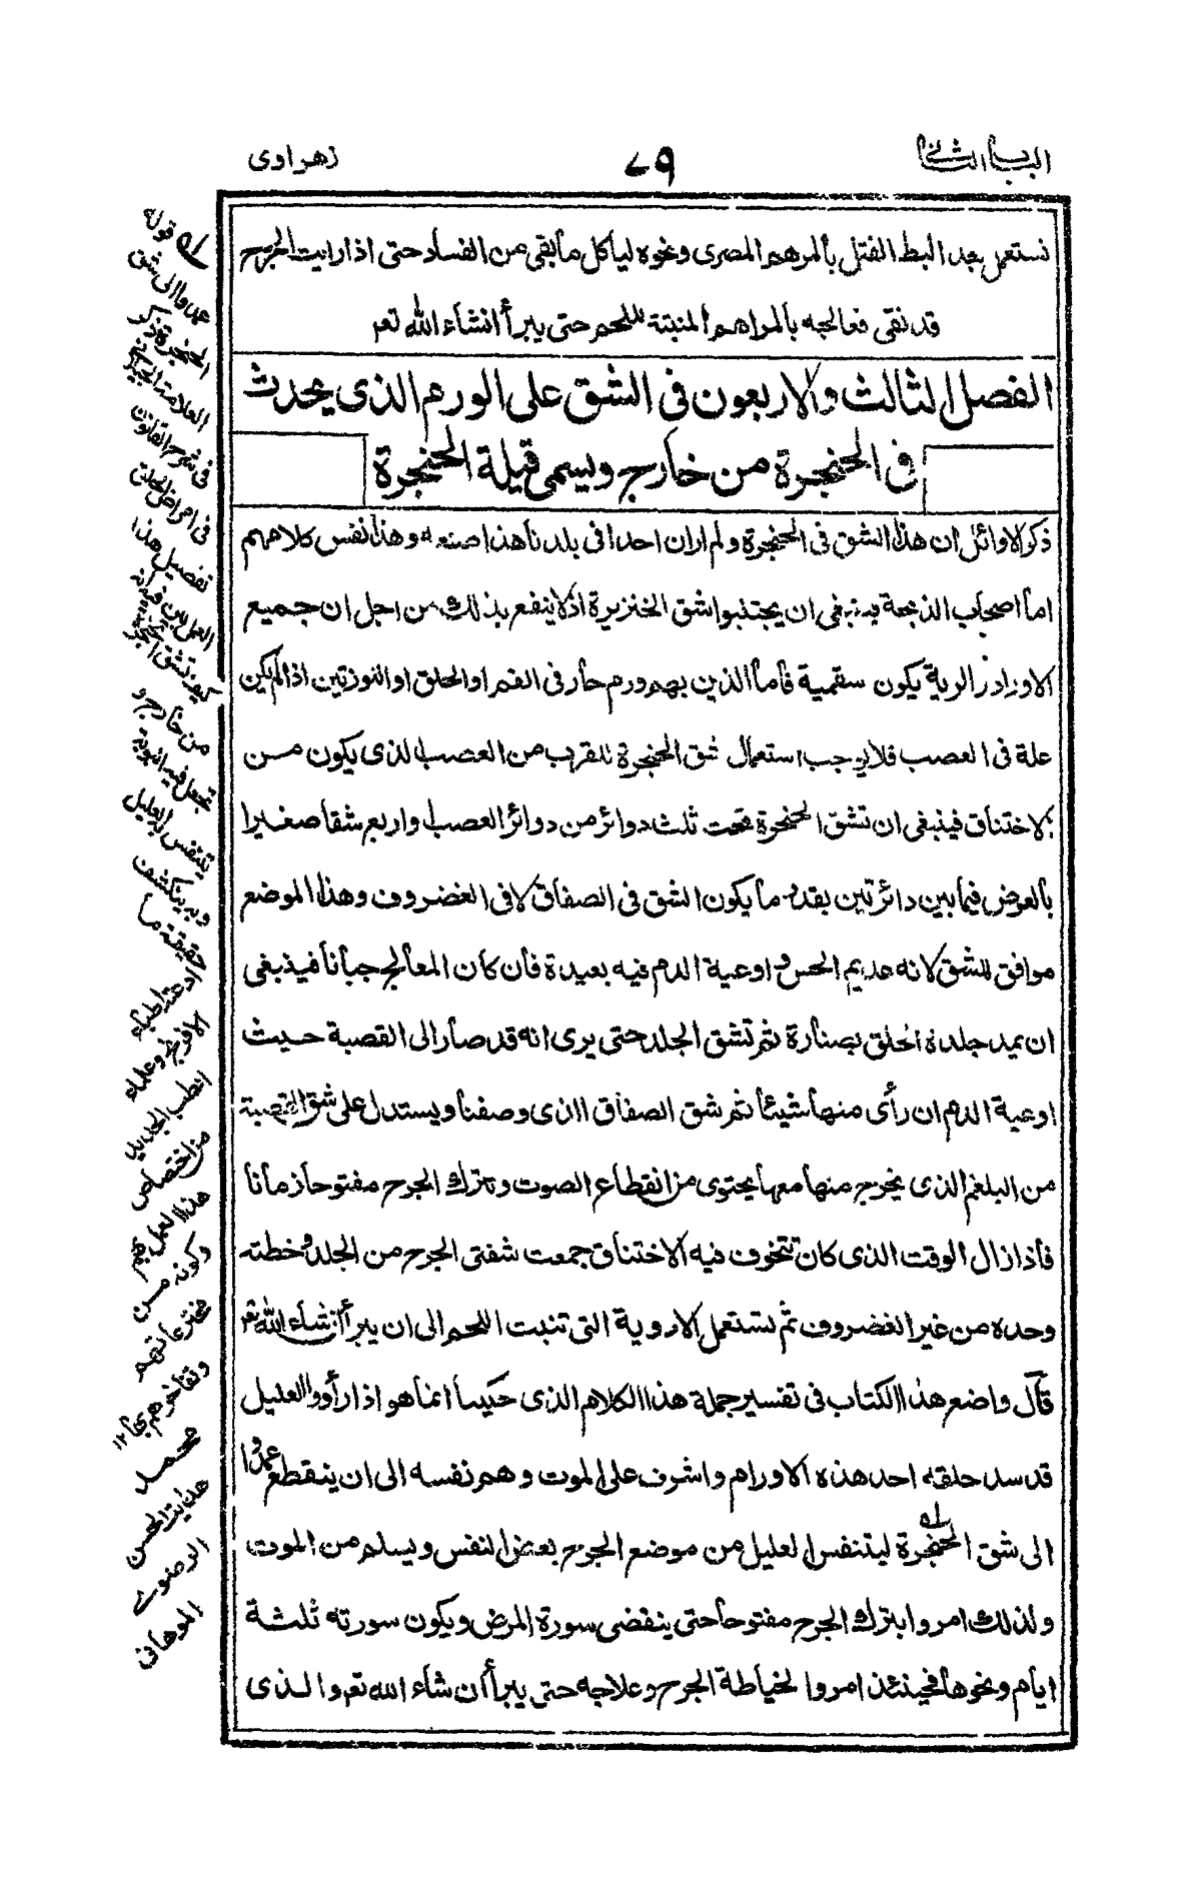 الباب الثانی
٧٩
زهراوی
نستعمل بعد البط الفتل بالمرهم المصری ونحوه لیأکل ما بقی من الفساد حتی اذا رایت الجرح
قد نقی فعالجه بالمراهم المنبتة للحم حتی یبرأ انشاء الله تعم
الفصل الثالث والاربعون فی الشق علی الورم الذی یحدث
فی الحنجرة من خارج ویسمی قیلة الحنجرة
ذکر الاوائل ان هذا الشق فی الحنجرة ولم ار ان احدا فی بلدنا هذا صنعه وهذا نفس کلامهم
اما اصحاب الذبحة فینبغی ان یجتنبوا شق الخنزیرة اذ لا ینفع بذلک من اجل ان جمیع
الاوراد الریة یکون سقمیة فاما الذین بهم ورم حار فی الفم او الحلق او اللوزتین اذا لم یکن
علة فی العصب فلا یوجب استعمال شق الحنجرة للقرب من العصب الذی یکون من
الاختناق فینبغی ان تشق الحنجرة تحت ثلث دوائر من دوائر العصب او اربع شقا صغیرا
بالعرض فیما بین دائرتین بقدر ما یکون الشق فی الصفاق لا فی الغضروف وهذا الموضع
موافق للشق لانه عدیم الحس و اوعیة الدم فیه بعیدة فان کان المعالج جبانا فینبغی
ان یمد جلدة الحلق بصنارة ثم تشق الجلد حتی یری انه قد صار الی القصبة حیث
اوعیة الدم ان رأی منها شیئا ثم شق الصفاق الذی وصفنا ویستدل علی شق القصبة
من البلغم الذی یخرج منها معها یحتوی من انقطاع الصوت وتترک الجرح مفتوحا زمانا
فاذا زال الوقت الذی کان تتخوف فیه الاختناق جمعت شفتی الجرح من الجلد وخطته
وحده من غیر الغضروف ثم تستعمل الادویة التی تنبت اللحم الی ان یبرأ انشاء الله تعم
قال واضع هذا الکتاب فی تفسیر جملة هذا الکلام الذی حکینا انما هو اذا رأوا العلیل
قد سد حلقه احد هذه الاورام واشرف علی الموت وهم نفسه الی ان ینقطع عمدوا
الی شق الحنجرة لیتنفس العلیل من موضع الجرح بعض النفس ویسلم من الموت
ولذلک امروا بترک الجرح مفتوحا حتی ینقضی سورة المرض ویکون سورته ثلثة
ایام ونحوها فحینئذ امروا لخیاطة الجرح وعلاجه حتی یبرأ ان شاء الله تعم والذی
له قوله
عمدوا الی شق
الحنجرة ذکر
العلامة الجیلانی
فی شرح القانون
فی امراض الحلق
تفصیل هذا
العمل وبین فیه انه
کیف تشق الحنجرة
من خارج و
تجعل فیه انبوبة
یتنفس به العلیل
وبه ینکشف
حقیقة ما
ادعته اطباء
الافرنج وعلماء
الطب الجدید
من اختصاص
هذا العمل بهم
وکونه من
مخترعاتهم
وتفاخرهم به ١٢
محمد
هدایة الحسن
الرضوی
الموهانی